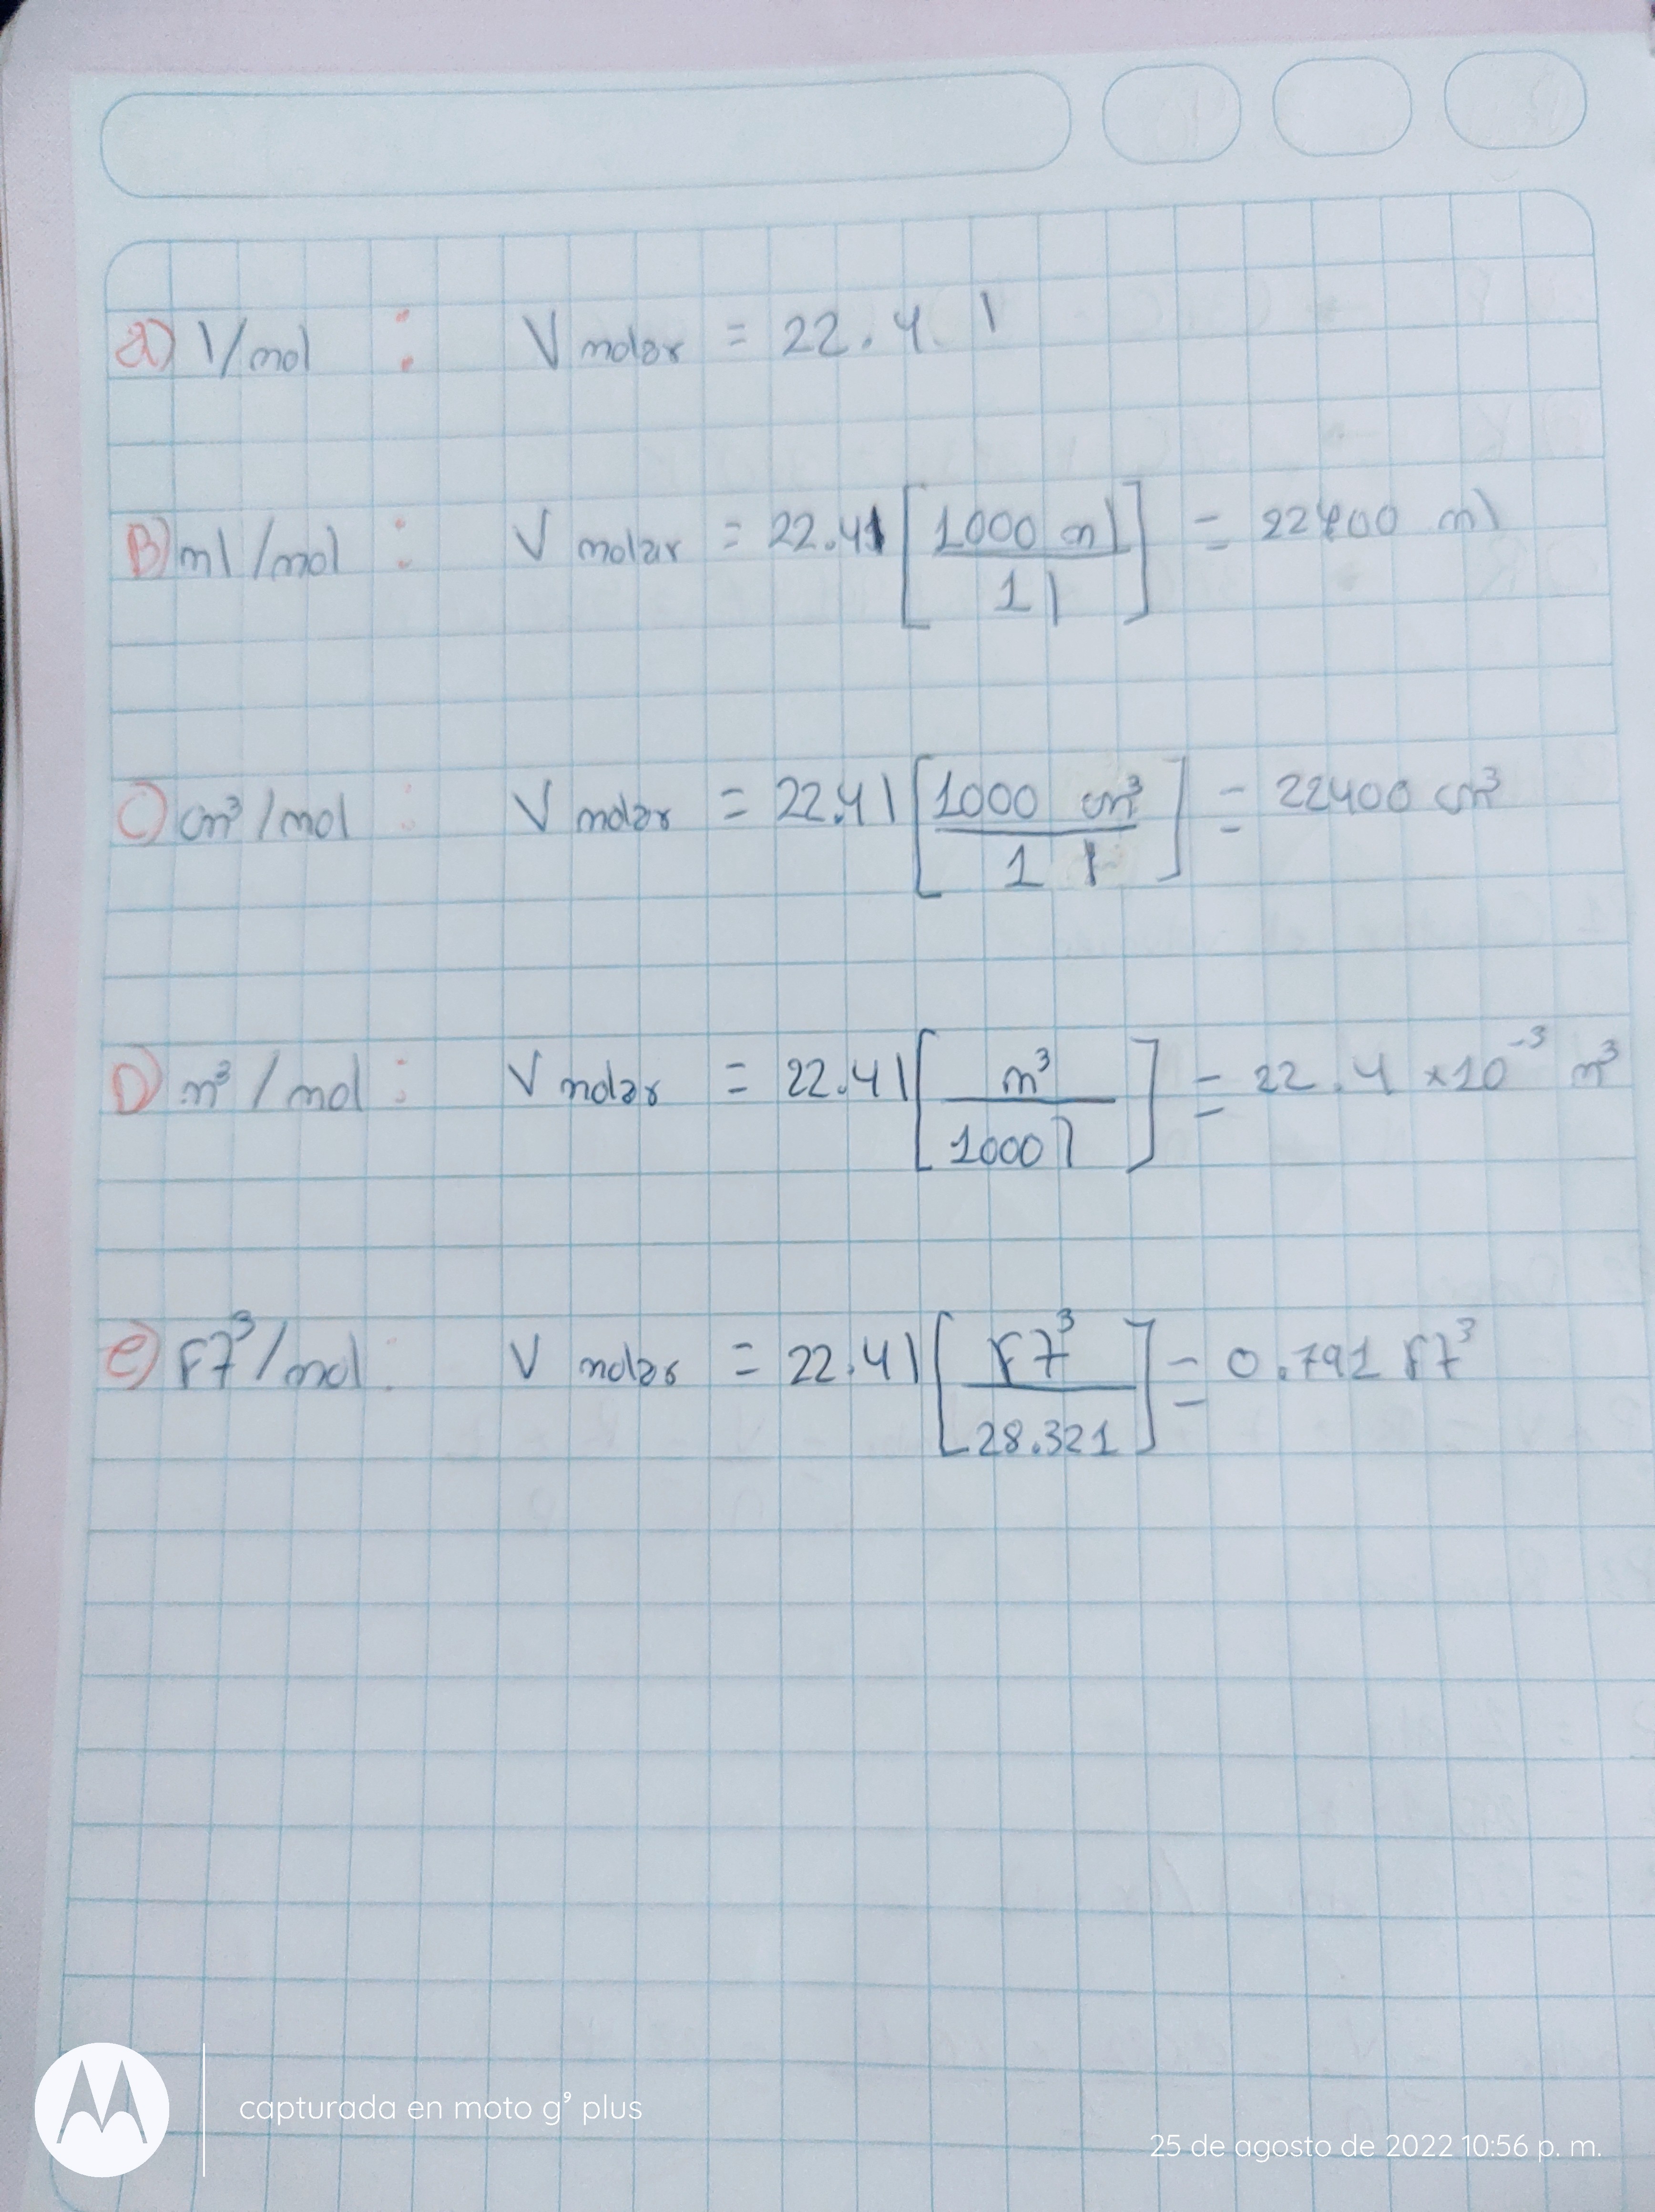 a) l/mol : V molar = 22.4 l
B) ml/mol : V molar = 22.4l [1000 ml / 1 l] = 22400 ml
C) cm³/mol : V molar = 22.4l [1000 cm³ / 1 l] = 22400 cm³
D) m³/mol : V molar = 22.4l [m³ / 1000 l] = 22.4 x10⁻³ m³
e) FT³/mol : V molar = 22.4l [FT³ / 28.32l] = 0.791 FT³
capturada en moto g⁹ plus
25 de agosto de 2022 10:56 p. m.